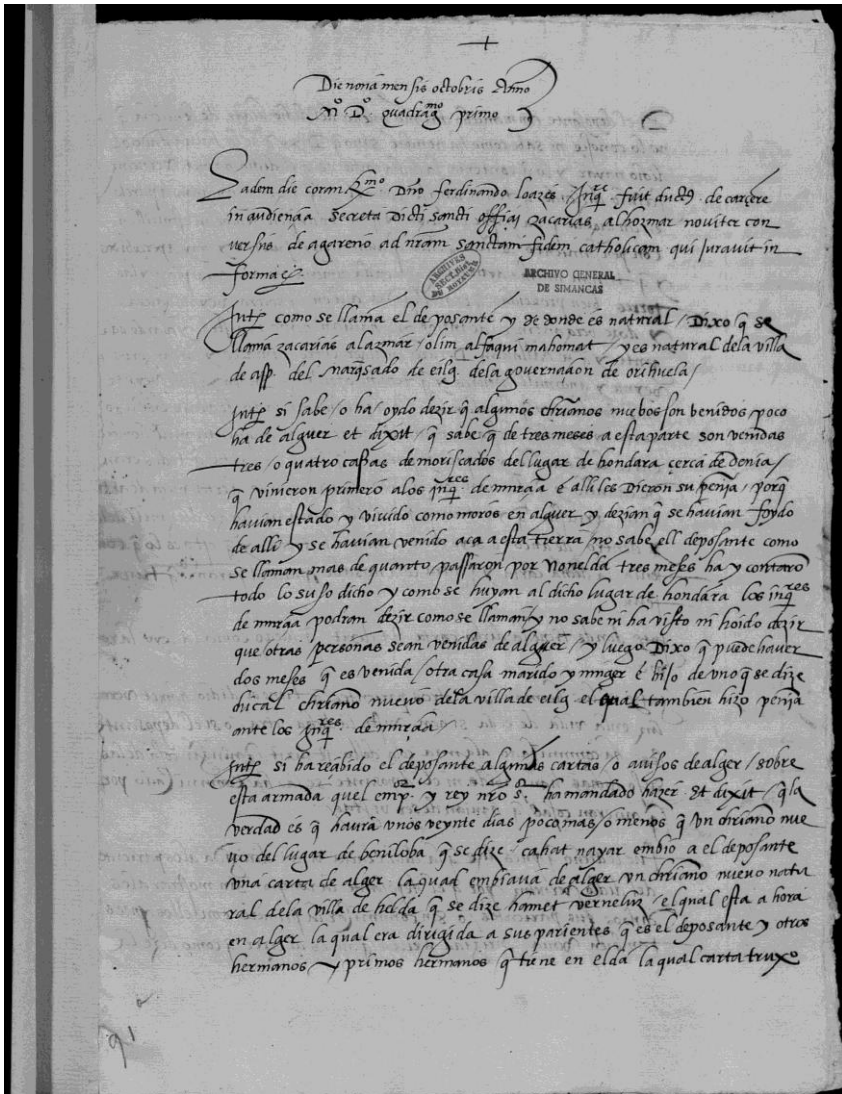 +
Die nona mensis octobris Anno
M.º D.º quadrag.mo primo
Eadem die coram R.mo Dño ferdinando loazes Inq.re fuit duct9 de carcere
in audiencia secreta Dicti sancti officij zacarias alhozmar noviter con
versus de agareno ad nrãm sanctam fidem catholicam qui juravit in
forma
ARCHIVES
SECT. HIST.
DU ROYAUME
ARCHIVO GENERAL
DE SIMANCAS
Int. como se llama el deposante y de donde es natural / Dixo q̃ se
llama zacarias alazmar / olim alfaqui mahomat / y es natural dela villa
de asp. del Marq̃sado de eilq̃ dela governacion de orihuela /
Int. si sabe / o ha / oydo dezir q̃ algunos chrianos nuebos son venidos poco
ha de alguer et dixit / q̃ sabe q̃ de tres meses a esta parte son venidas
tres / o quatro cassas de moriscados del lugar de hondara cerca de denia /
q̃ vinieron primero alos inq.res de murcia e alli les Dieron su penia / porq̃
havian estado y vivido como moros en alguer y dezian q̃ se havian foydo
de alli y se havian venido aca a esta tierra / no sabe ell deposante como
se llaman mas de quanto passaron por Nonelda tres meses ha y contarõ
todo lo suso dicho y como se huyan al dicho lugar de hondara los inq.res
de murcia podran dezir como se llaman / y no sabe ni ha visto ni hoido dezir
que / otras / personas sean venidas de alguer / y luego Dixo q̃ puede haver
dos meses q̃ es venida / otra casa marido y muger e hijo de uno q̃ se dize
ducal chriano nuevo dela villa de eilq̃ el qual tambien hizo penia
ante los Inq.res de murcia /
Int. si ha reçibido el deposante algunas cartas / o avisos de alger / sobre
esta armada quel emp.or y rey nro s.or ha mandado hazer et dixit / q̃ la
verdad es q̃ haura unos veynte dias poco mas / o menos q̃ vn chriano nue
vo del lugar de beniloba q̃ se dize cahat nayar embio a el deposante
vna carta de alger la qual embiava de alger vn chriano nuevo natu
ral dela villa de helda q̃ se dize hamet verneliz / el qual esta a hora
en alger la qual era dirigida a sus parientes q̃ es el deposante y otros
hermanos y primos hermanos q̃ tiene en elda la qual carta truxo
91